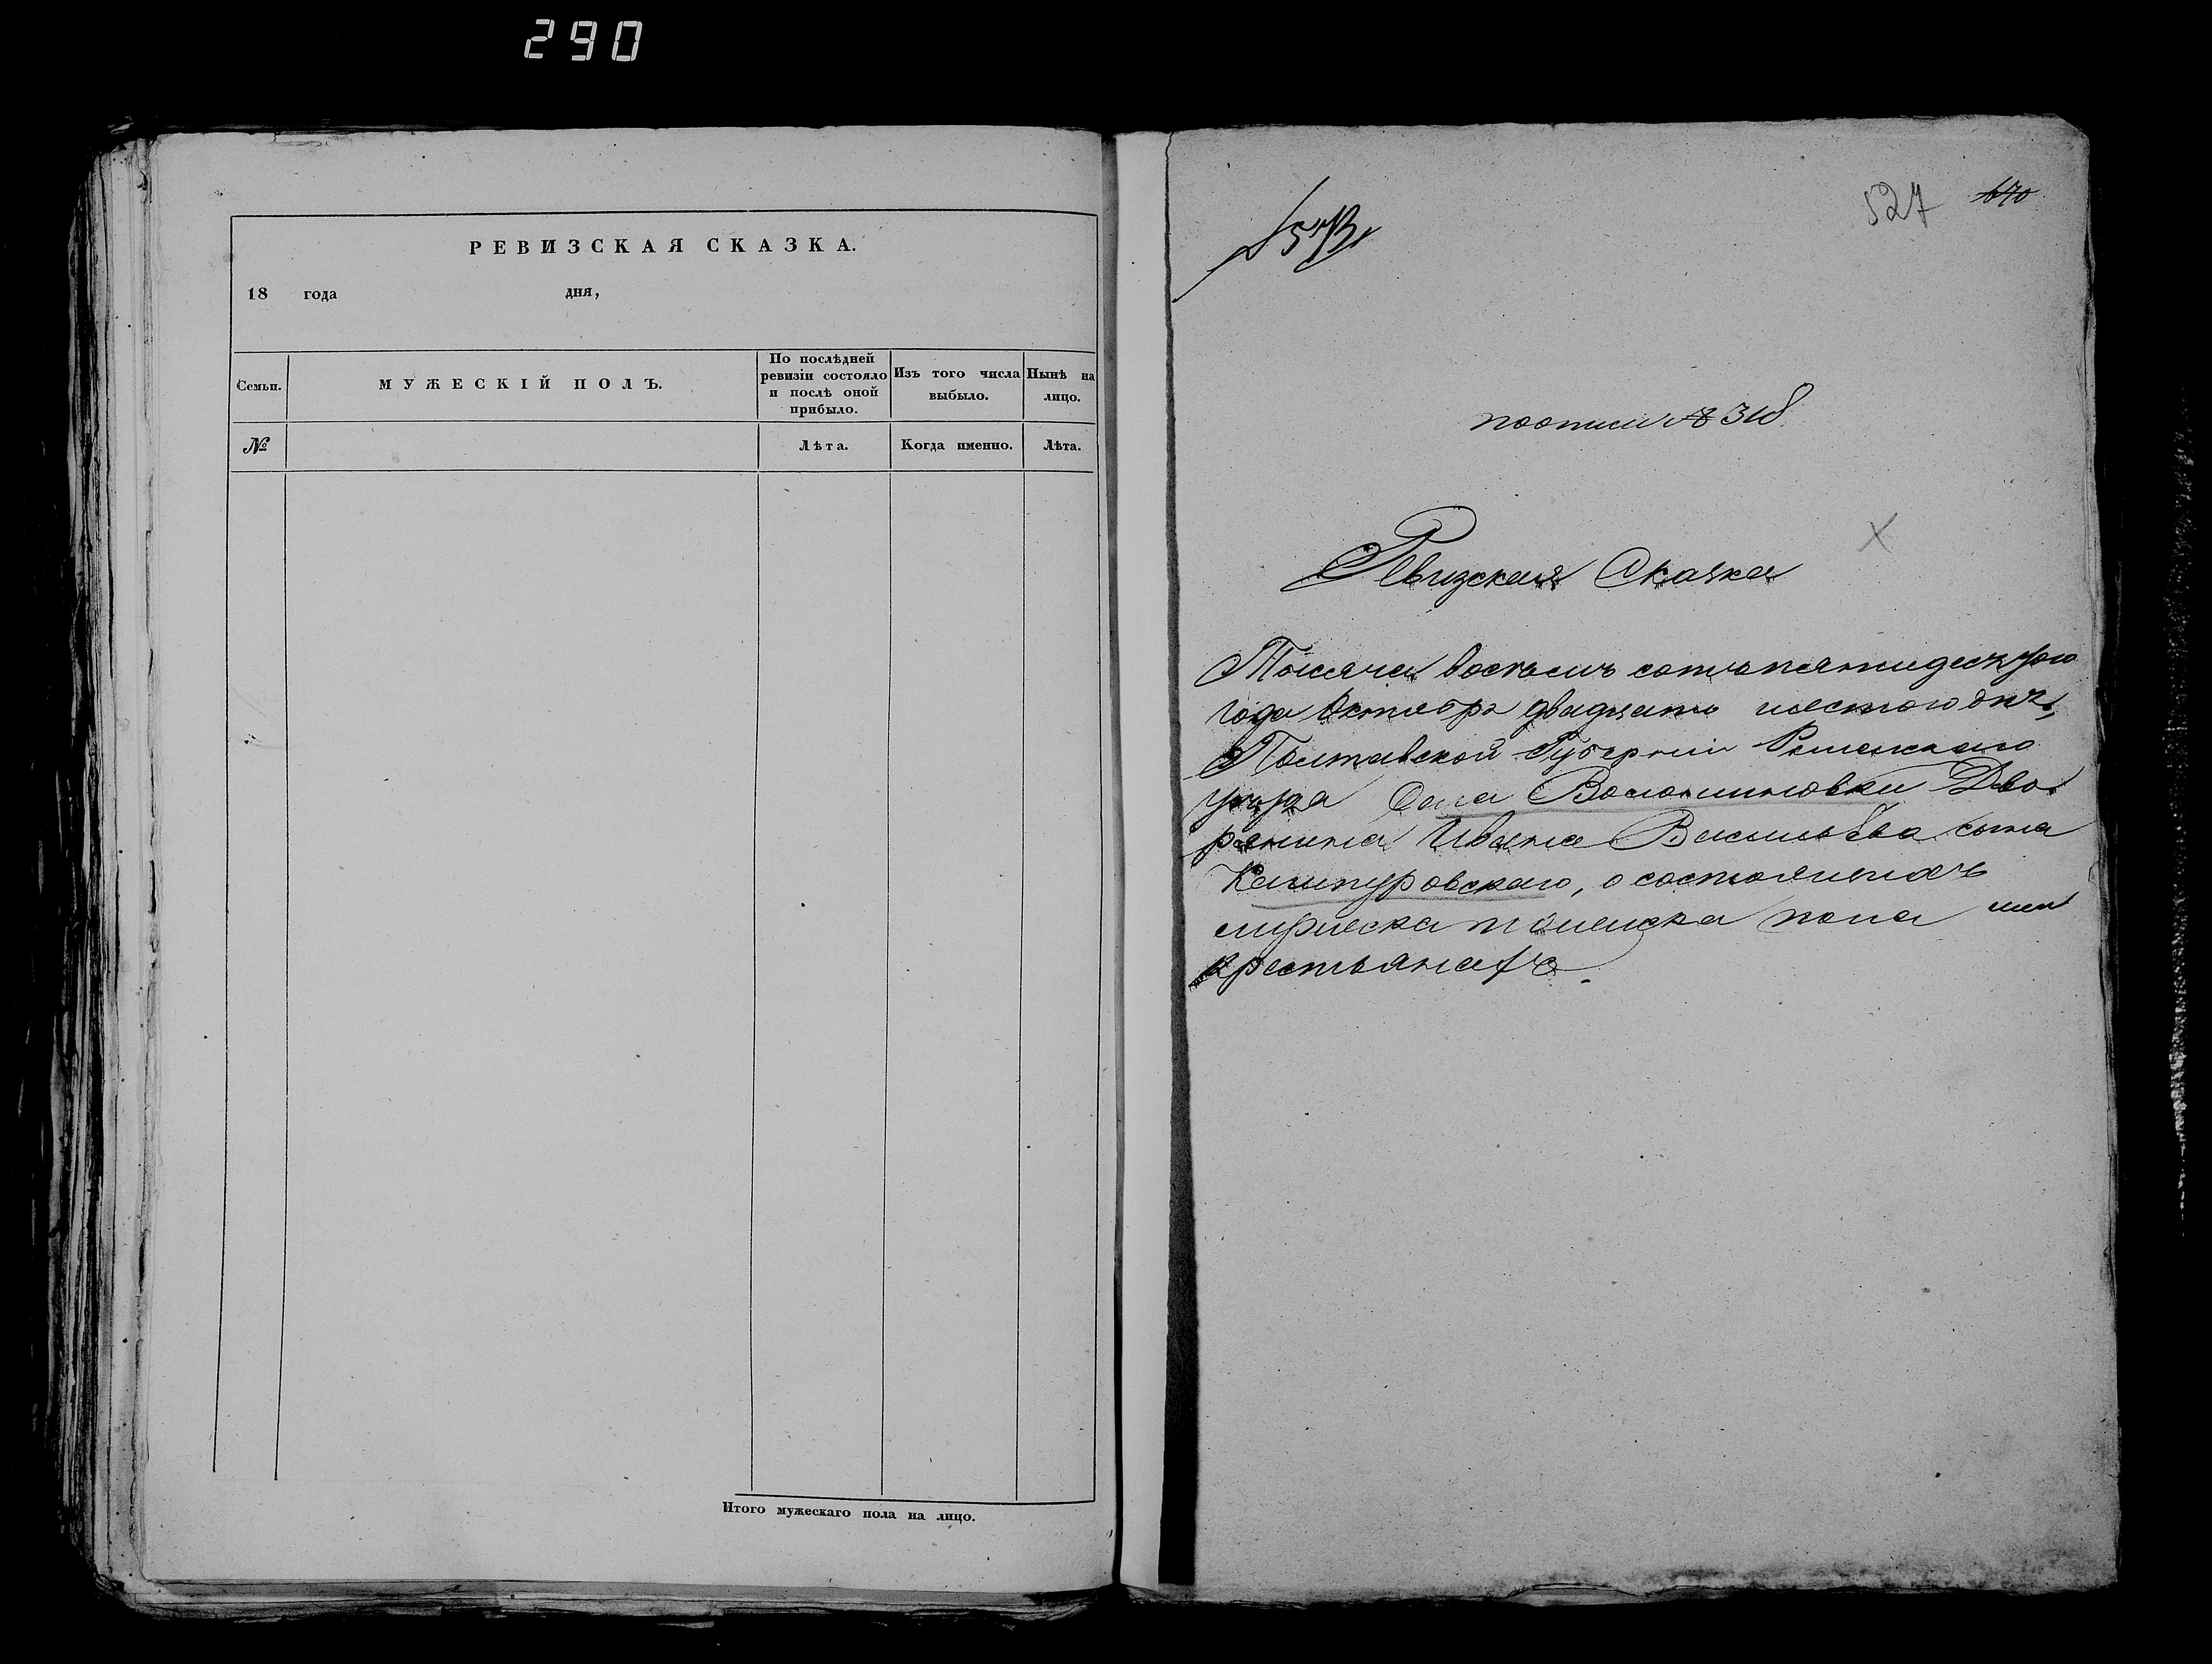 290
РЕВИЗСКАЯ СКАЗКА.
18 года дня,
Семьи.
МУЖЕСКІЙ ПОЛЪ.
По послѣдней ревизіи состояло и послѣ оной прибыло.
Изъ того числа выбыло.
Нынѣ на лицо.
№
Лѣта.
Когда именно.
Лѣта.
Итого мужескаго пола на лицо.
527 670
поописи № 318
Ревизская Сказка
Тысяча восѣемъ сотъ пятидесятого
года Октября двадцать шестого дня,
Полтавской Губерніи Роменскаго
уѣзда Села Волошиновки Дво-
рянина Ивана Васильѣва сына
о состоящихъ
мужеска и женска пола
крестьянахъ.